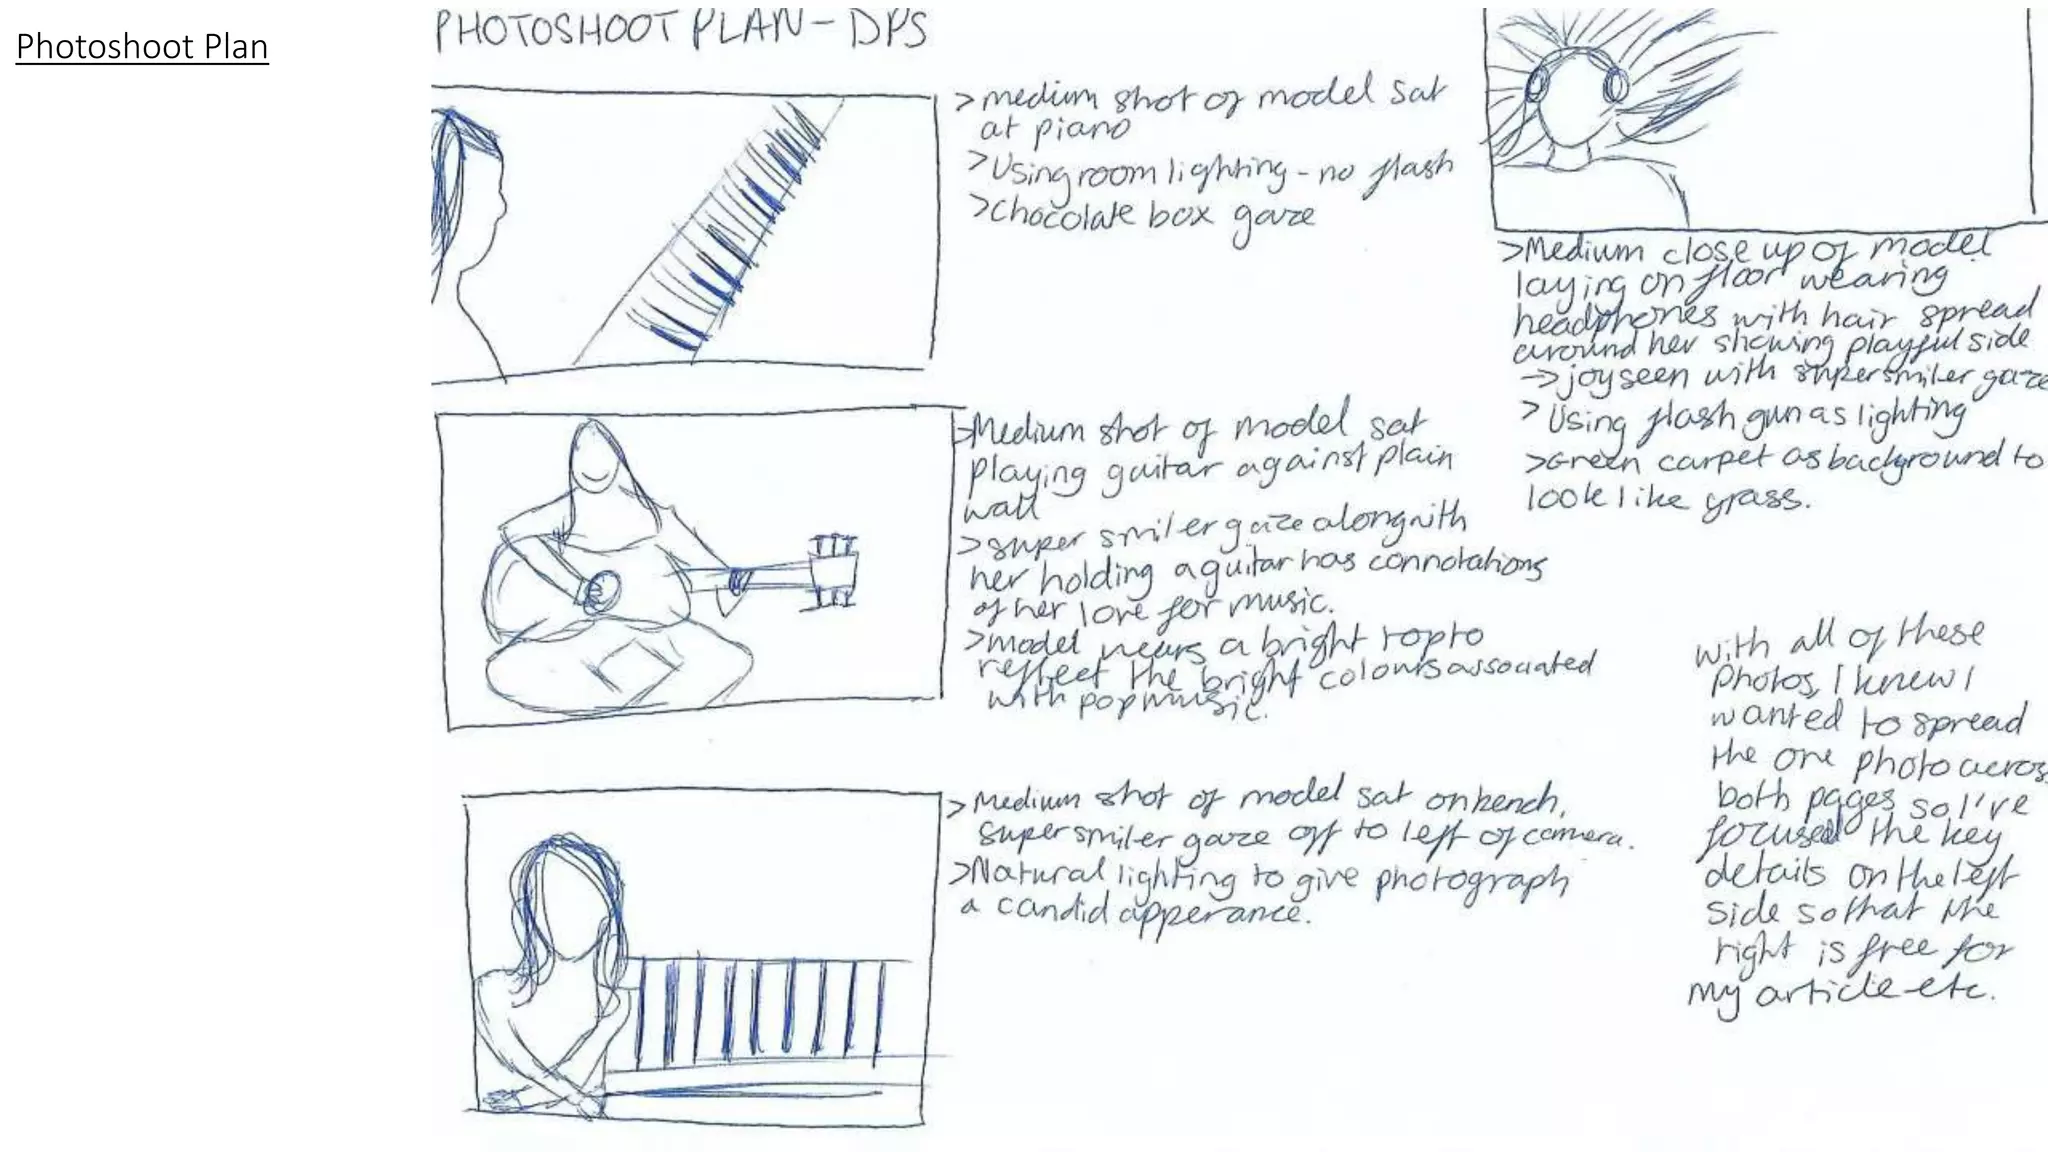 Photoshoot Plan
PHOTOSHOOT PLAN - DPS
>medium shot of model sat
at piano
>Using room lighting - no flash
>chocolate box gaze
>Medium shot of model sat
playing guitar against plain
wall
>super smiler gaze along with
her holding a guitar has connotations
of her love for music.
>model wears a bright top to
reflect the bright colours associated
with pop music.
>Medium shot of model sat on bench,
super smiler gaze off to left of camera.
>Natural lighting to give photograph
a candid apperance.
>Medium close up of model
laying on floor wearing
headphones with hair spread
around her showing playful side
→ joy seen with super smiler gaze
>Using flash gun as lighting
>Green carpet as background to
look like grass.
with all of these
photos, I knew I
wanted to spread
the one photo across
both pages so I've
focused the key
details on the left
side so that the
right is free for
my article etc.